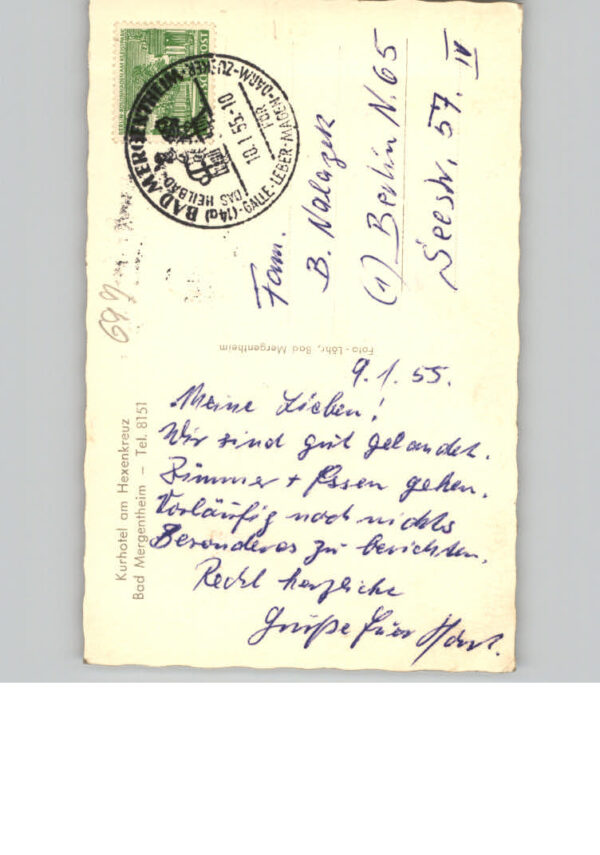 9.1.55.
Meine Lieben!
Wir sind gut gelandet.
Zimmer + Essen gehen.
Vorläufig noch nichts
Besonderes zu berichten.
Recht herzliche
Grüße Euer Horst.
Fam.
B. Nalazek
(1) Berlin N.65
Seestr. 57. IV
Kurhotel am Hexenkreuz
Bad Mergentheim – Tel. 8151
Foto-Löhr, Bad Mergentheim
(14a) BAD MERGENTHEIM
DAS HEILBAD
FÜR
GALLE-LEBER-MAGEN-DARM-ZUCKER
10.1.55.-10
POST
69.9